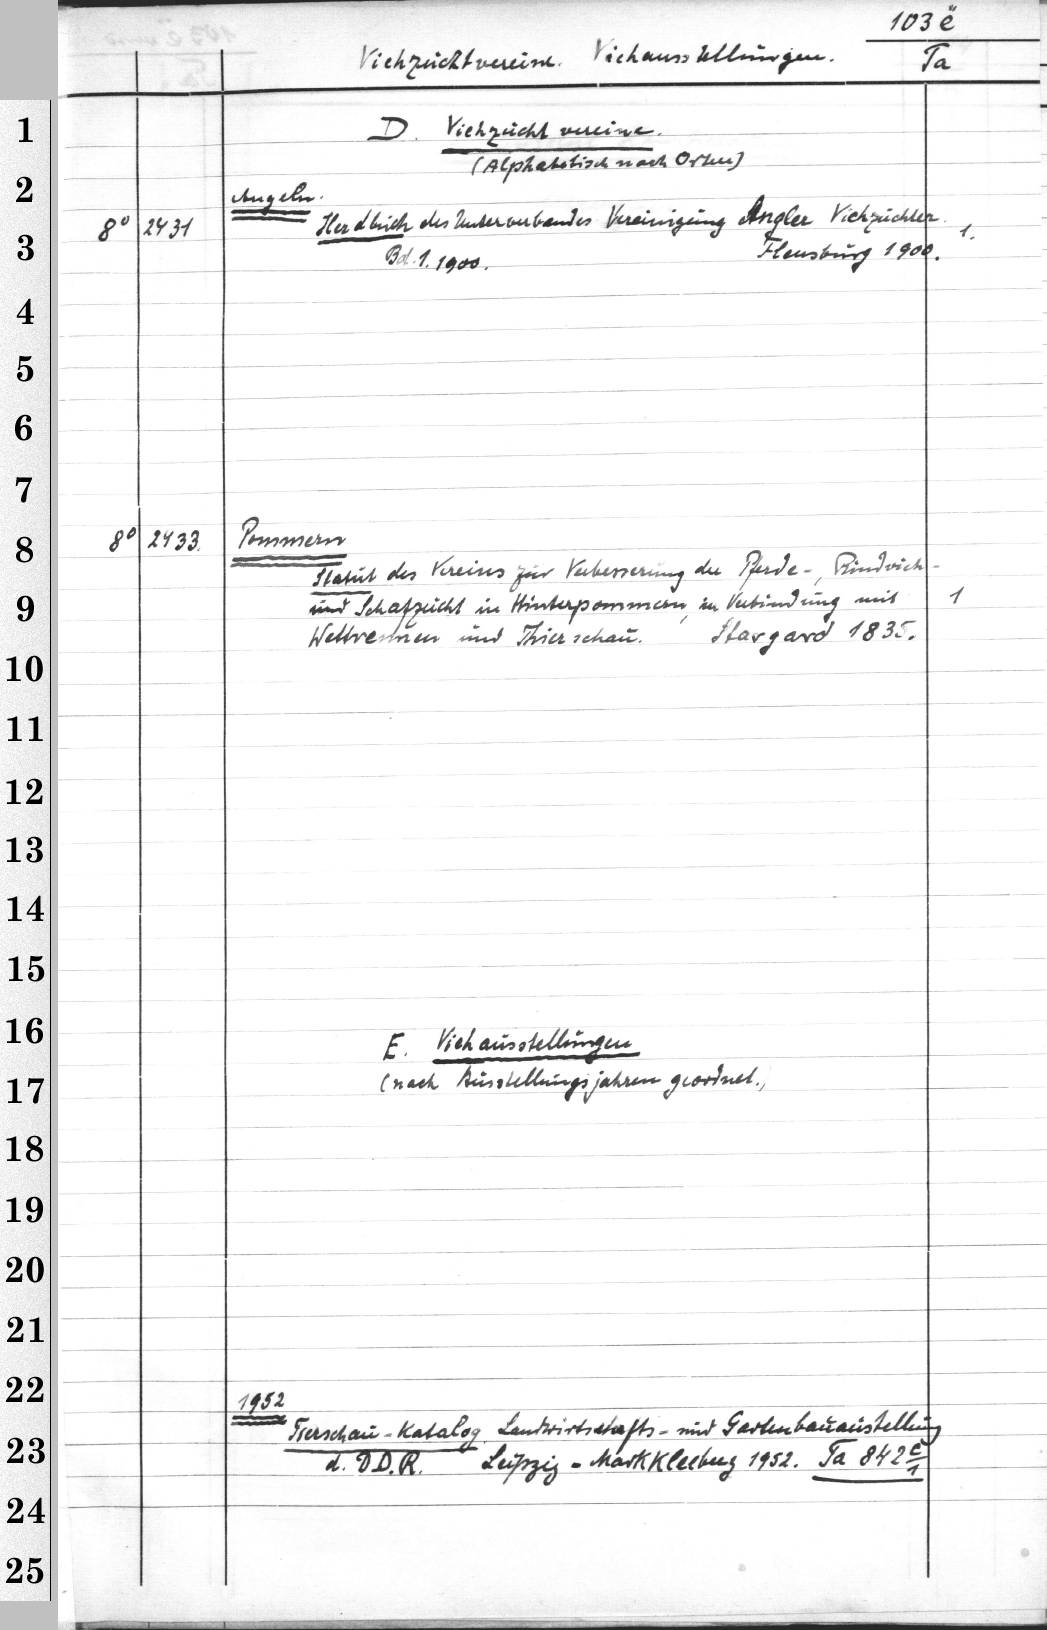 103 ë
Viehzuchtvereine. Viehausstellungen.
Ta
D. Viehzuchtvereine.
(Alphabetisch nach Orten)
Angeln.
8° 2431 Herdbuch des Unterverbandes Vereinigung Angler Viehzüchter.
Bd. 1. 1900. Flensburg 1900. 1.
8° 2433. Pommern
Statut des Vereins zur Verbesserung der Pferde-, Rindvieh-
und Schafzucht in Hinterpommern, in Verbindung mit 1
Wettrennen und Thierschau. Stargard 1835.
E. Viehausstellungen
(nach Ausstellungsjahren geordnet.)
1952
Tierschau-Katalog Landwirtschafts- und Gartenbauaustellung
d. DD.R. Leipzig - Markkleeberg 1952. Ta 842 c/1
1
2
3
4
5
6
7
8
9
10
11
12
13
14
15
16
17
18
19
20
21
22
23
24
25